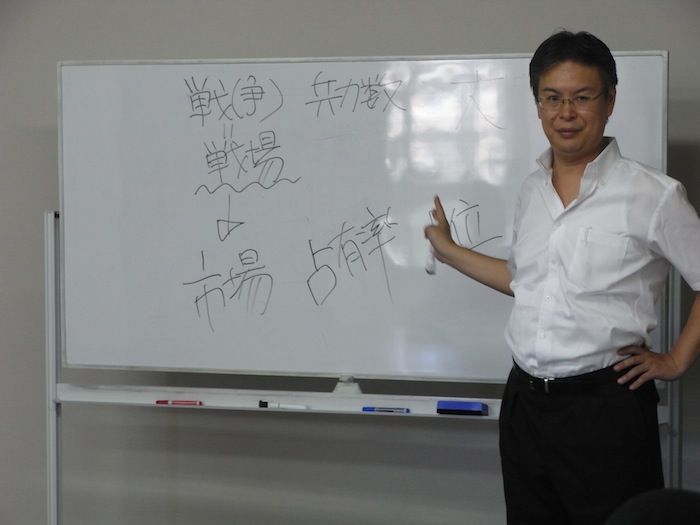 戦(争) 兵力数 大
戦場
市場 占有率 位